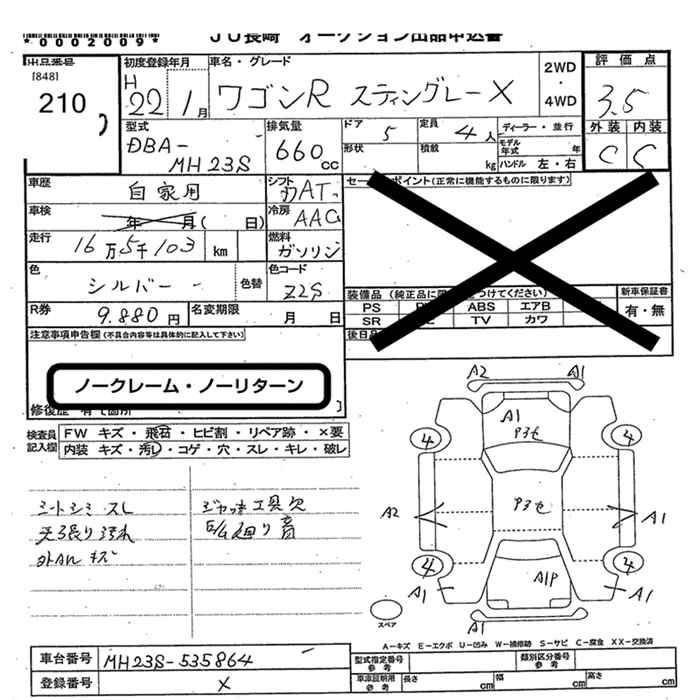 *0002009*
JU長崎 オークション出品申込書
出品番号
[848]
210
初度登録年月
H
22 1月
車名・グレード
ワゴンR スティングレーX
2WD
・
4WD
評価点
3.5
外装 内装
C C
型式
DBA-
MH23S
排気量
660cc
ドア 5
定員 4人
形状
積載 kg
ディーラー・並行
モデル年式 年
ハンドル 左・右
車歴 自家用
シフト AT
車検 年 月( 日)
冷房 AAC
走行 16万5千103 km
燃料 ガソリン
色 シルバー
色替
色コード Z2S
R券 9.880円
名変期限 月 日
セールスポイント(正常に機能するものに限ります)
装備品 (純正品に限 つけてください)
PS ABS エアB
SR TV カワ
新車保証書
有・無
後日
注意事項申告欄(不具合内容等は具体的に記入して下さい)
ノークレーム・ノーリターン
修復歴 有 箇所
検査員記入欄
FW キズ・飛石・ヒビ割・リペア跡・×要
内装 キズ・汚れ・コゲ・穴・スレ・キレ・破レ
シートシミ スレ
天張り汚れ
外AWキズ
ジャッキ工具欠
E/G廻り音
A2 A1
A1
P3セ
4 4
A2 P3セ A1
4 4
A1 A1P A1
A1
スペア
A-キズ E-エクボ U-凹み W-補修跡 S-サビ C-腐食 XX-交換済
車台番号 MH23S-535864
登録番号 X
型式指定番号 参考
類別区分番号 参考
車庫証明用 参考 長さ cm 幅 cm 高さ cm